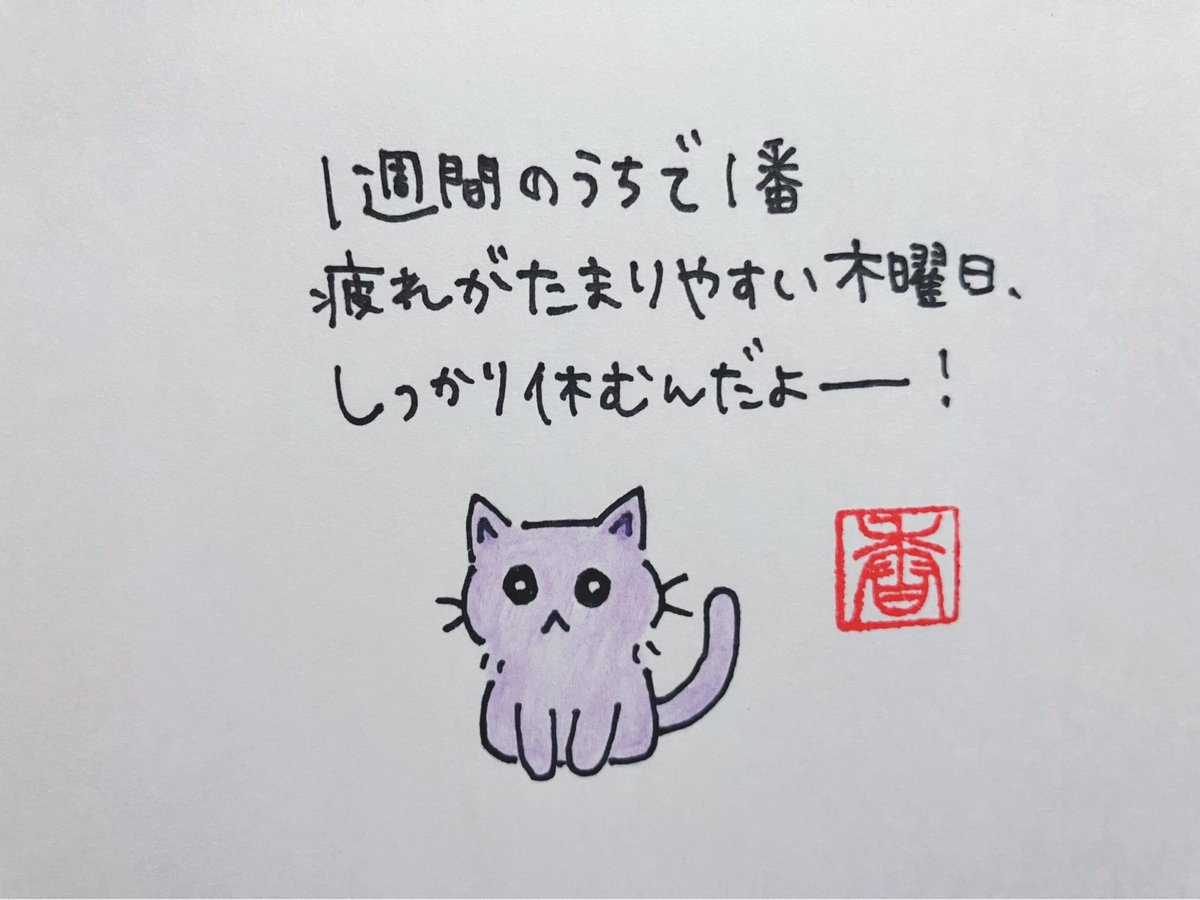 1週間のうちで1番
疲れがたまりやすい木曜日、
しっかり休むんだよー！
香